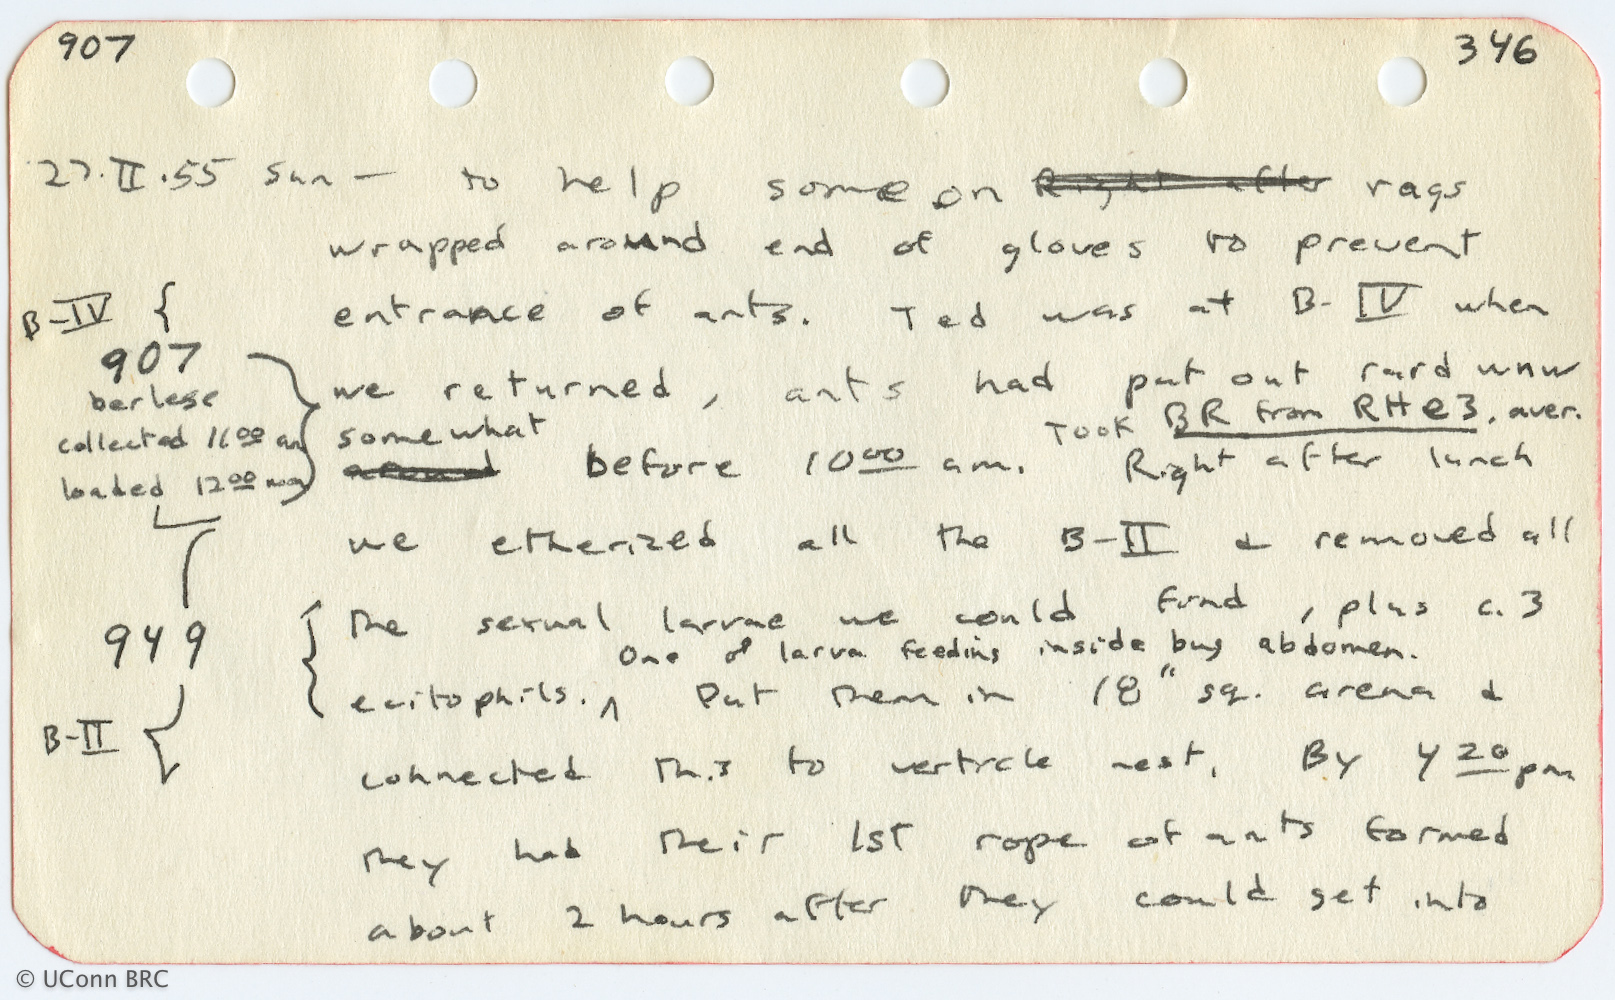 907
346
27.II.55 Sun — to help some on Right after rags
wrapped around end of gloves to prevent
B-IV {
entrance of ants. Ted was at B-IV when
907
we returned, ants had put out raid wnw
berlese
Took BR from RH e3, aver.
collected 11 00 am
somewhat
around before 10 00 am. Right after lunch
loaded 12 00 noon
we etherized all the B-II & removed all
949
the sexual larvae we could find, plus c. 3
One of larva feeding inside bug abdomen.
ecitophils. ^ Put them in 18" sq. arena &
B-II {
connected this to verticle nest. By 4 20 pm
they had their 1st rope of ants formed
about 2 hours after they could get into
© UConn BRC